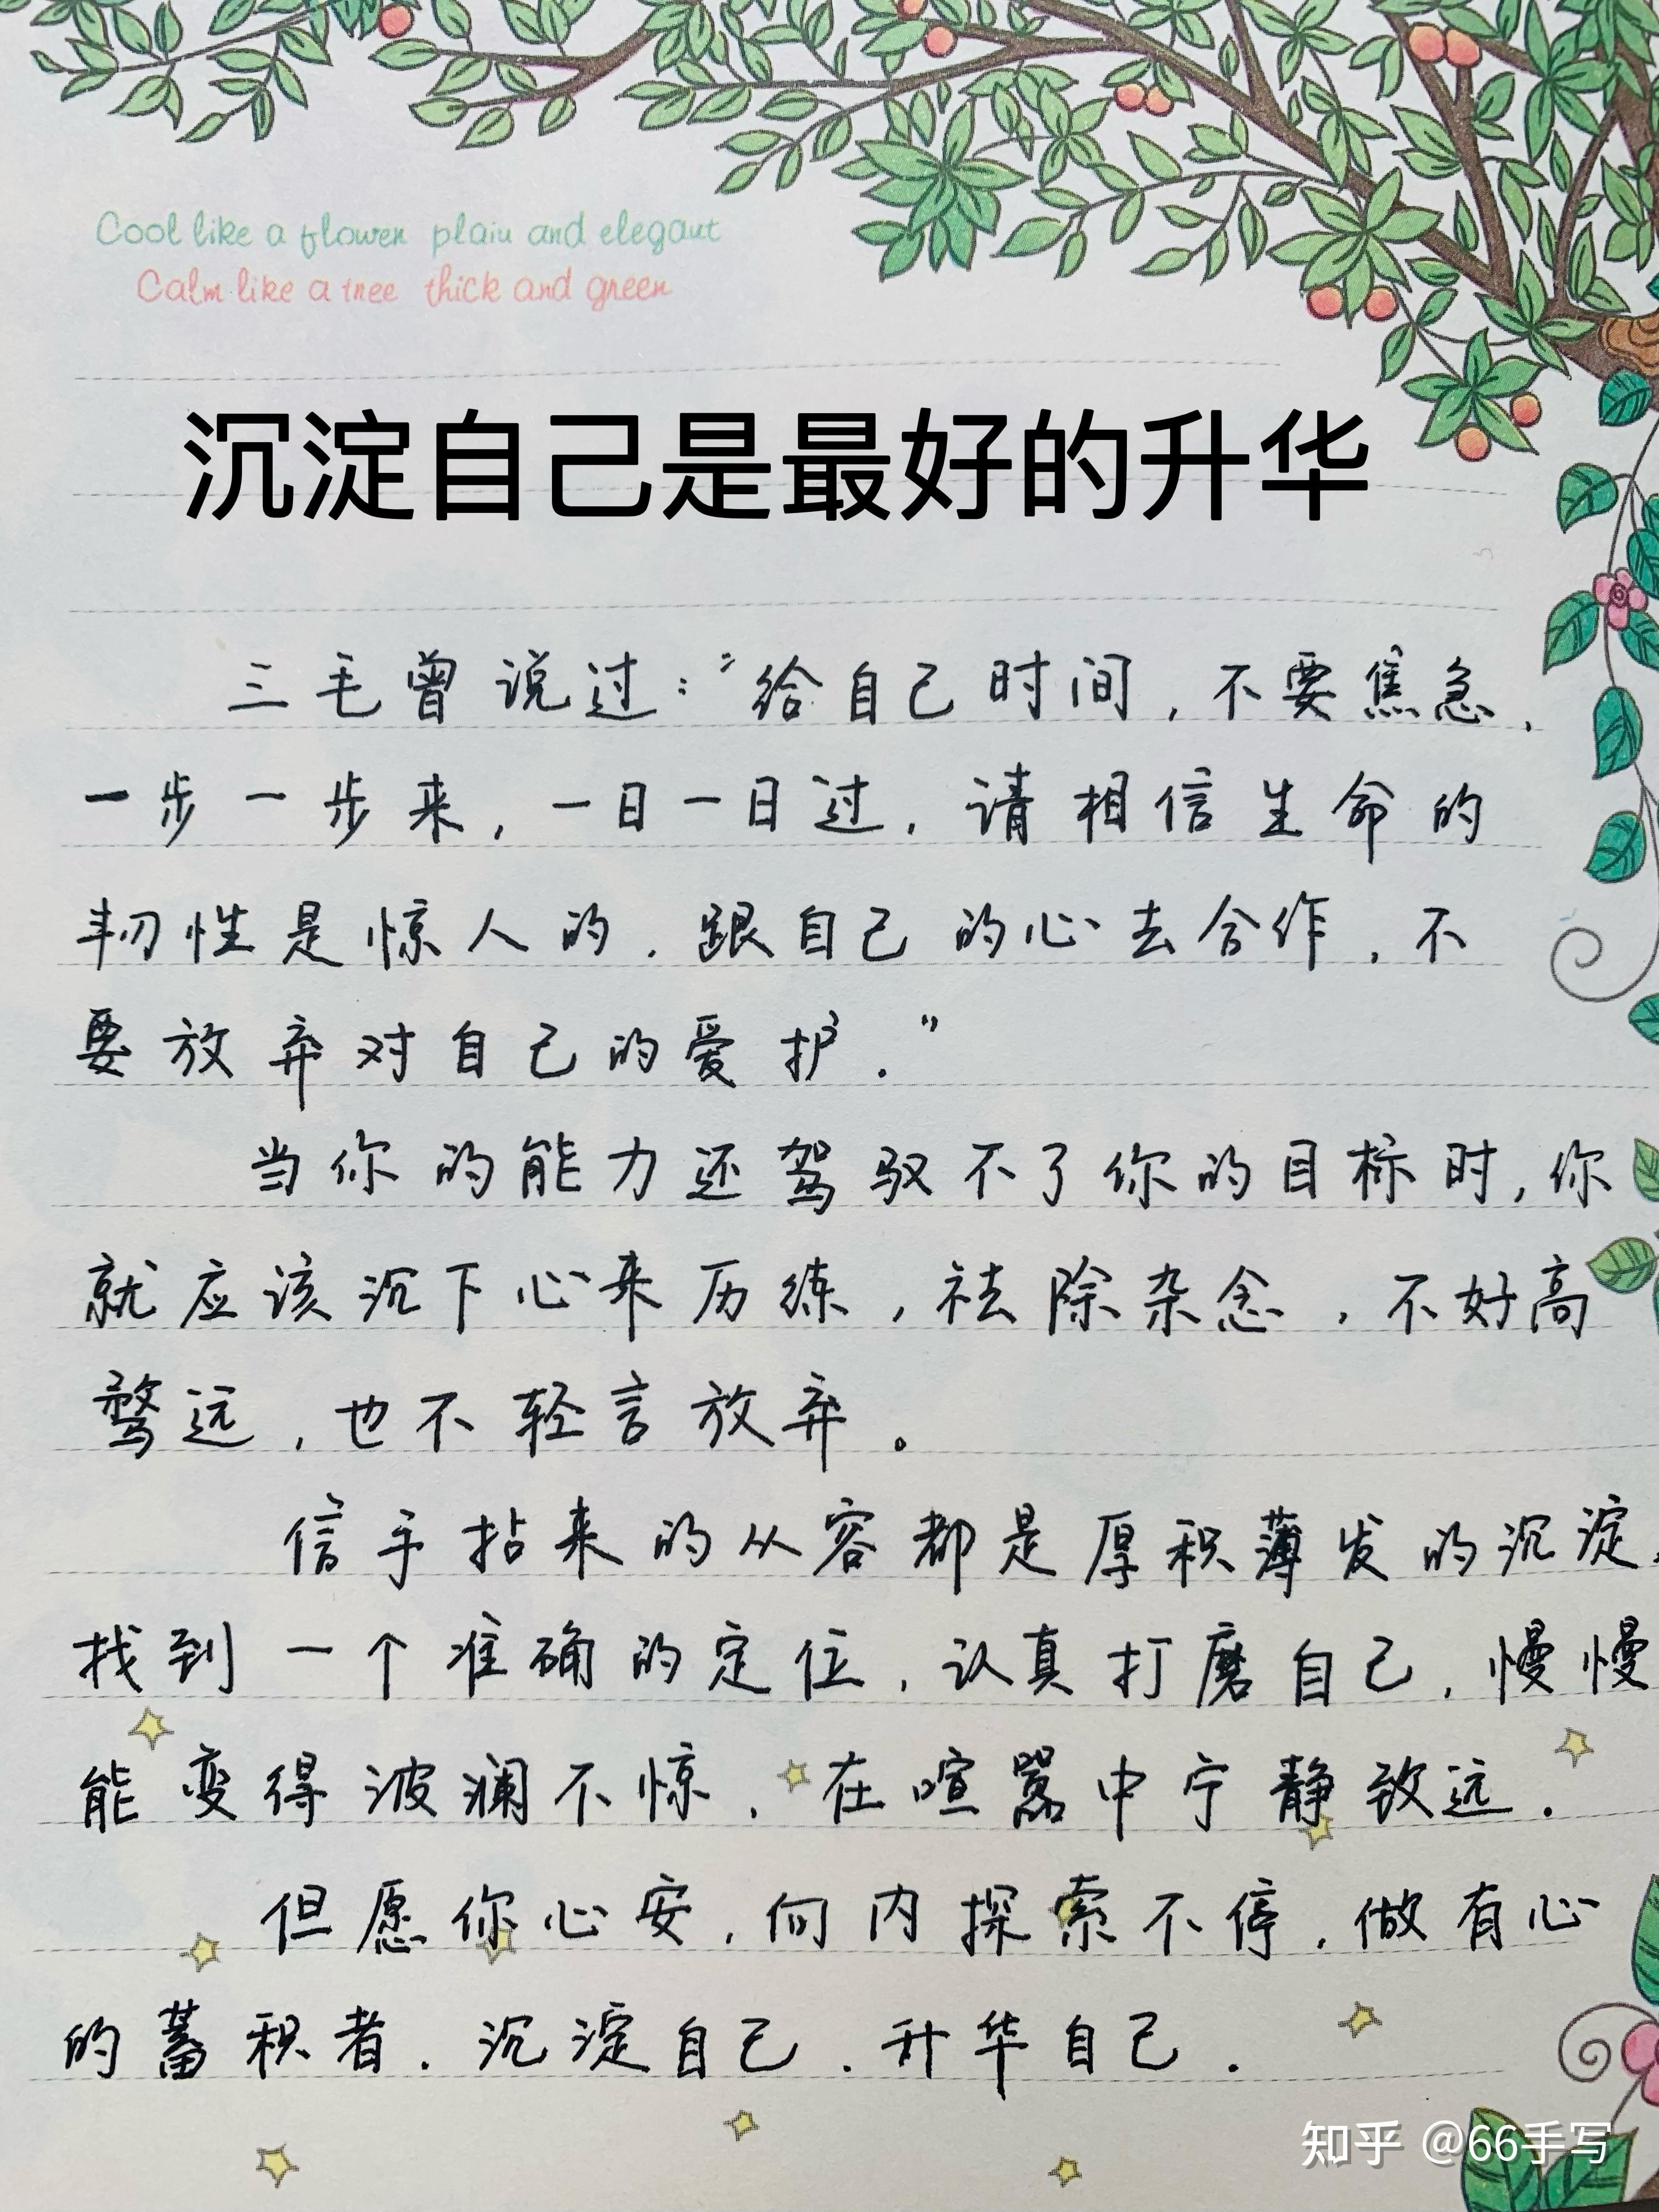 Cool like a flower plain and elegant
Calm like a tree thick and green
沉淀自己是最好的升华
三毛曾说过:“给自己时间,不要焦急,
一步一步来,一日一日过,请相信生命的
韧性是惊人的.跟自己的心去合作,不
要放弃对自己的爱护.”
当你的能力还驾驭不了你的目标时,你
就应该沉下心来历练,祛除杂念,不好高
骛远,也不轻言放弃。
信手拈来的从容都是厚积薄发的沉淀,
找到一个准确的定位,认真打磨自己,慢慢
能变得波澜不惊,在喧嚣中宁静致远.
但愿你心安,向内探索不停,做有心
的蓄积者.沉淀自己.升华自己.
知乎 @66手写